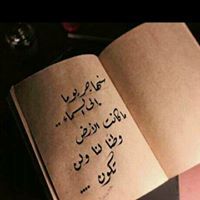 سنهاجر يوما
إلى السماء ..
ما كانت الأرض
وطنا لنا ولن
تكون ....